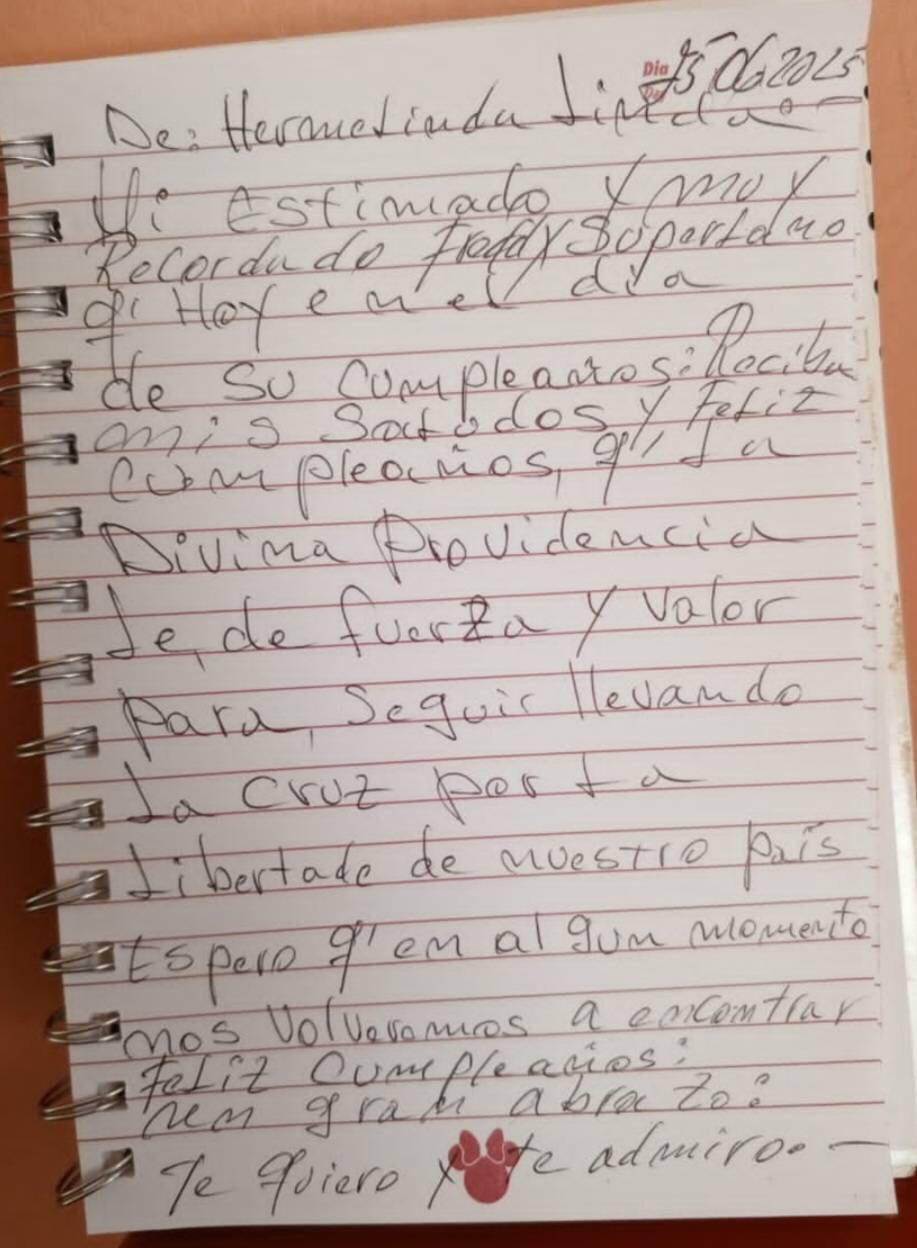 Dia 15 06 2025
De: Hermelinda
Mi Estimado y muy
Recordado Freddy Superlano
q' Hoy en el dia
de su Cumpleaños: Reciba
mis Saludos y Feliz
Cumpleaños, q' la
Divina Providencia
le, de fuerza y valor
para, Seguir llevando
la cruz por la
libertade de nuestro país
Espero q' en algun momento
nos volveremos a encontrar
feliz Cumpleaños:
un gran abrazo:
Te quiero y te admiro. —